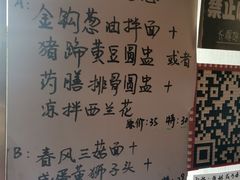 A:
金钩葱油拌面 +
猪蹄黄豆圆盅 或者
药膳排骨圆盅 +
凉拌西兰花
原价:35 特:30
B: 春风三菇面 +
狮子头
禁止